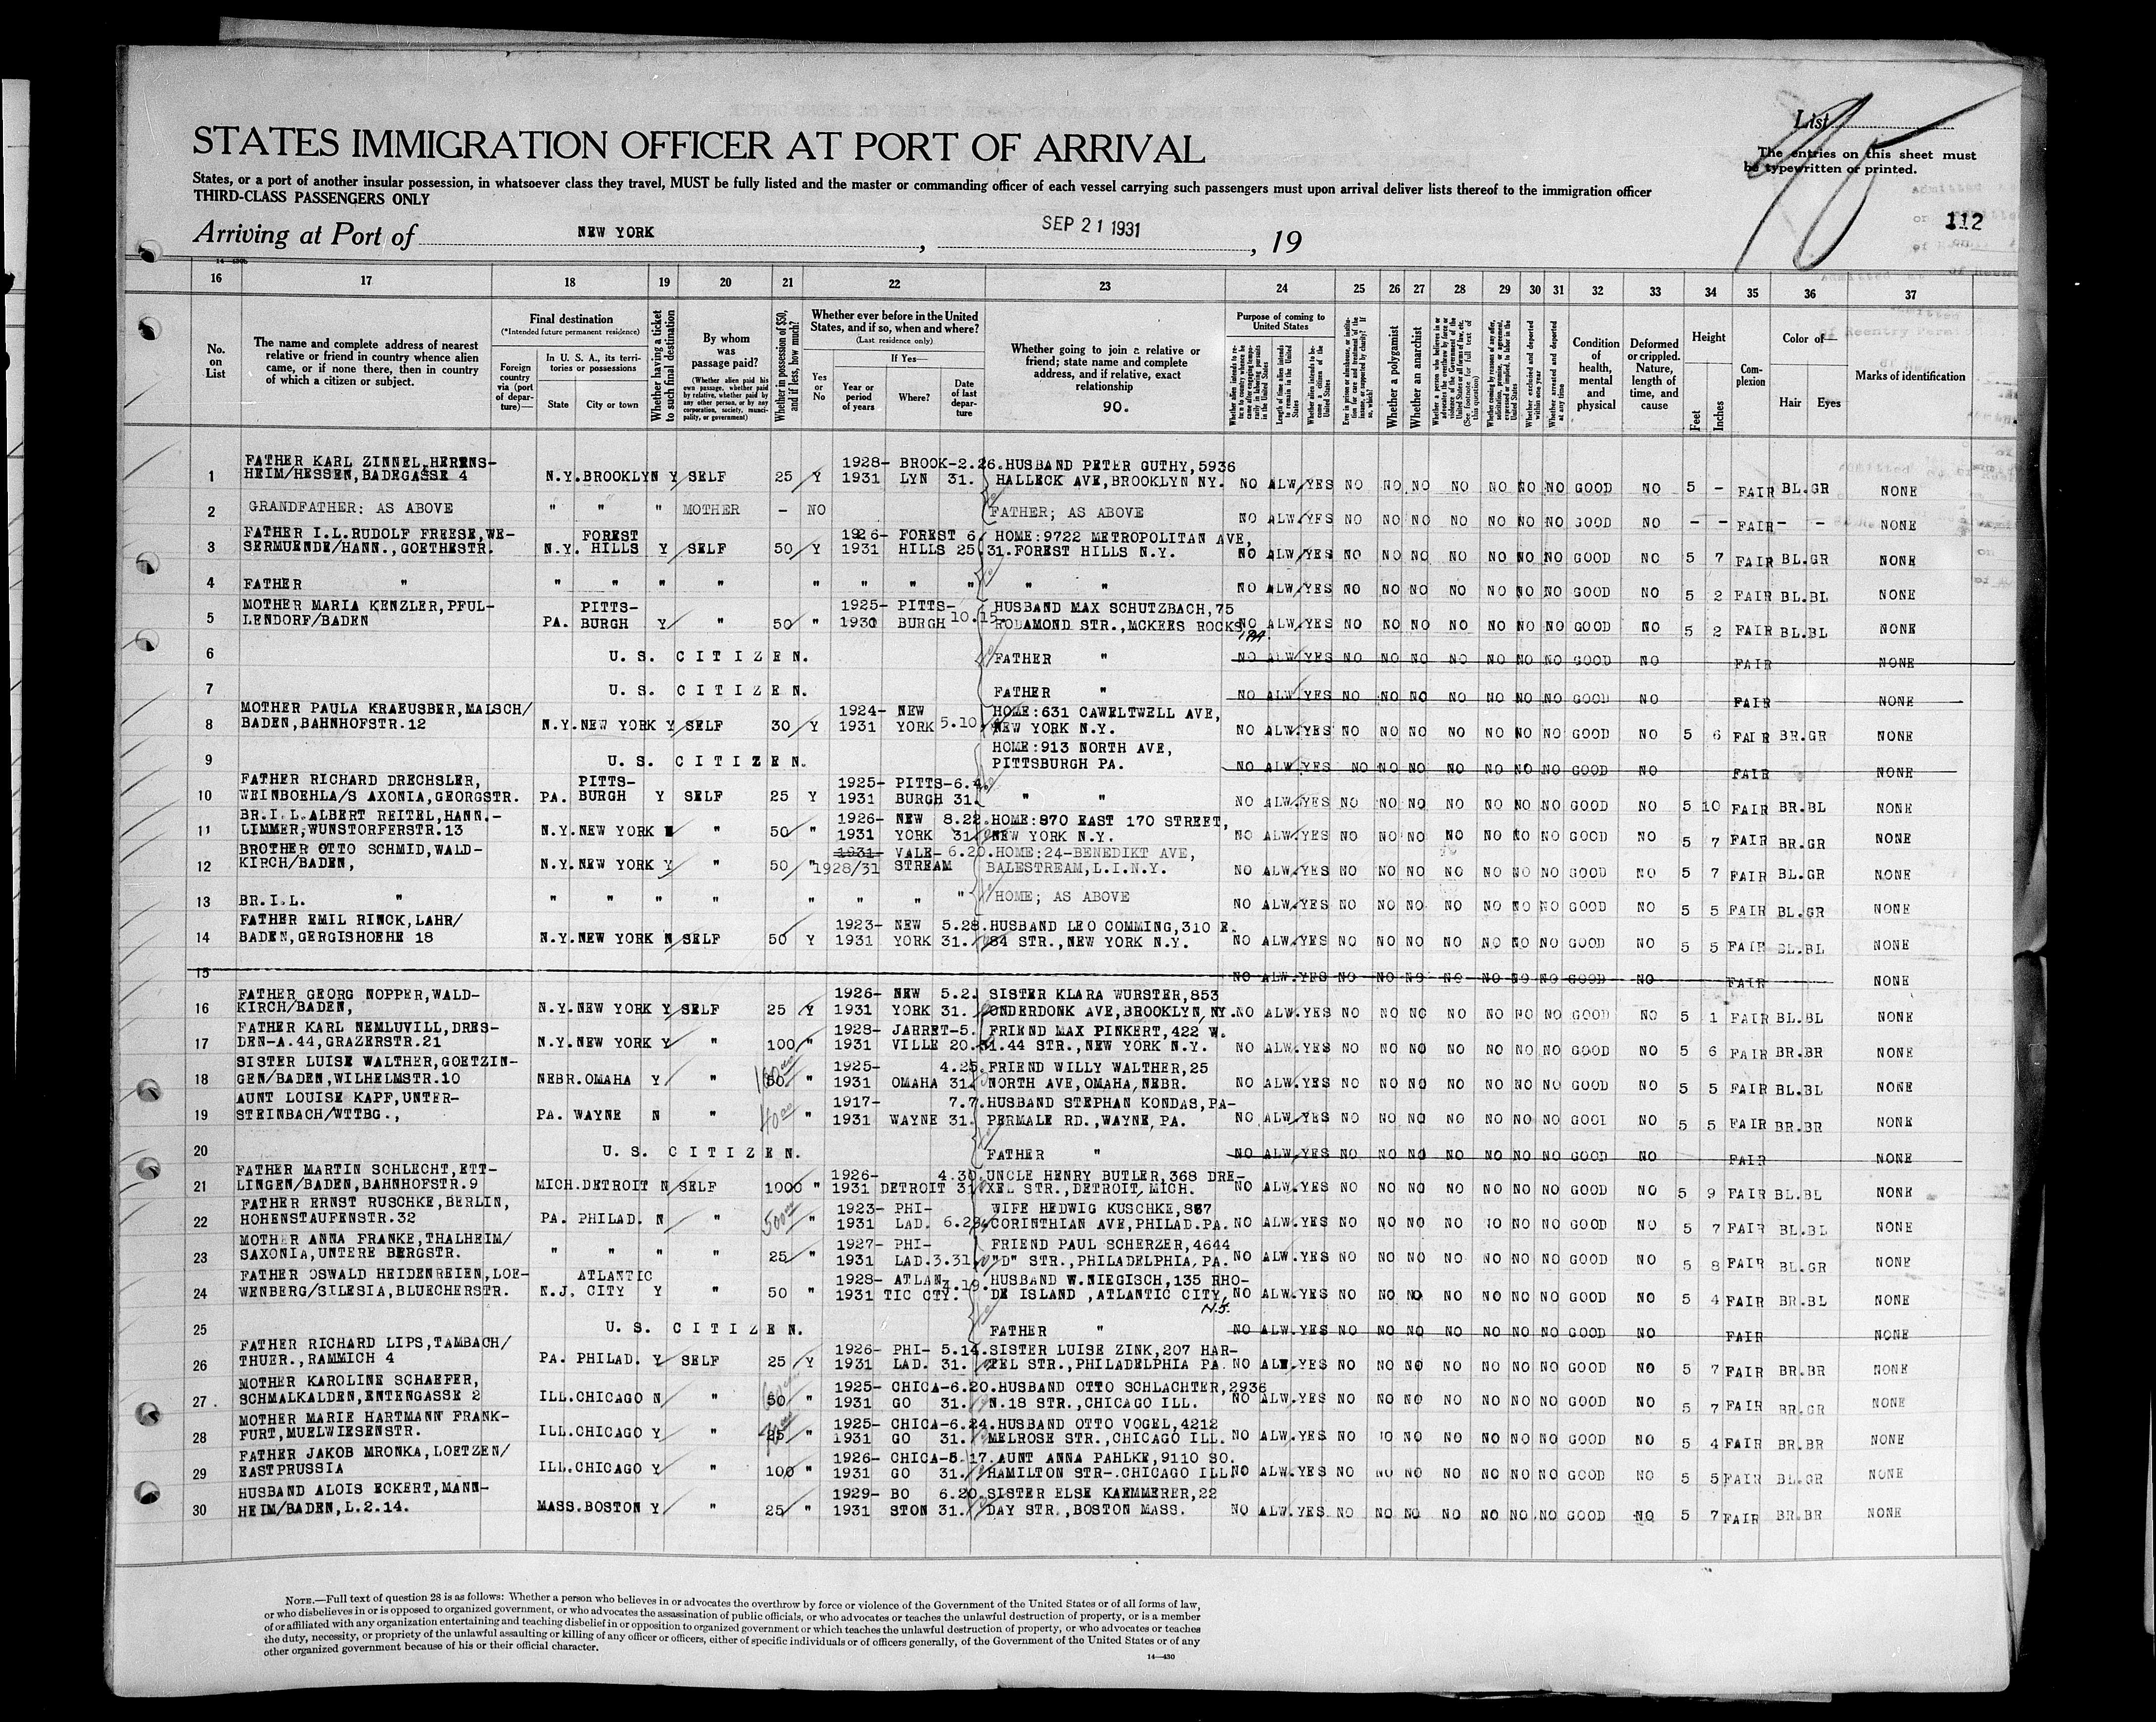 STATES IMMIGRATION OFFICER AT PORT OF ARRIVAL
List
The entries on this sheet must
be typewritten or printed.
States, or a port of another insular possession, in whatsoever class they travel, MUST be fully listed and the master or commanding officer of each vessel carrying such passengers must upon arrival deliver lists thereof to the immigration officer
THIRD-CLASS PASSENGERS ONLY
112
Arriving at Port of NEW YORK, SEP 21 1931, 19
16 17 18 19 20 21 22 23 24 25 26 27 28 29 30 31 32 33 34 35 36 37
No. on List
The name and complete address of nearest relative or friend in country whence alien came, or if none there, then in country of which a citizen or subject.
Final destination
(*Intended future permanent residence)
Foreign country via (port of departure)—
In U. S. A., its territories or possessions
State
City or town
Whether having a ticket to such final destination
By whom was passage paid?
(Whether alien paid his own passage, whether paid by relative, whether paid by any other person, or by any corporation, society, municipality, or government)
Whether in possession of $50, and if less, how much?
Whether ever before in the United States, and if so, when and where?
(Last residence only)
Yes or No
If Yes—
Year or period of years
Where?
Date of last departure
Whether going to join a relative or friend; state name and complete address, and if relative, exact relationship
90.
Purpose of coming to United States
Whether a polygamist
Whether an anarchist
Condition of health, mental and physical
Deformed or crippled. Nature, length of time, and cause
Height
Feet
Inches
Complexion
Color of—
Hair
Eyes
Marks of identification
1 FATHER KARL ZINNEL, HERRNS-
HEIM/HESSEN, BADEGASSE 4 N.Y. BROOKLYN Y SELF 25 Y 1928- 1931 BROOK- LYN 2.26. 31. HUSBAND PETER GUTHY, 5936
HALLECK AVE, BROOKLYN NY. NO ALW. YES NO NO NO NO NO NO NO GOOD NO 5 - FAIR BL. GR NONE
2 GRANDFATHER: AS ABOVE " " " MOTHER - NO FATHER; AS ABOVE NO ALW. YES NO NO NO NO NO NO NO GOOD NO - - FAIR - - NONE
3 FATHER I.L. RUDOLF FREESE, WE-
SERMUENDE/HANN., GOETHESTR. N.Y. FOREST HILLS Y SELF 50 Y 1926- 1931 FOREST HILLS 6 25 31. HOME: 9722 METROPOLITAN AVE,
FOREST HILLS N.Y. NO ALW. YES NO NO NO NO NO NO NO GOOD NO 5 7 FAIR BL. GR NONE
4 FATHER " " " " " " " " " " " NO ALW. YES NO NO NO NO NO NO NO GOOD NO 5 2 FAIR BL. BL NONE
5 MOTHER MARIA KENZLER, PFUL-
LENDORF/BADEN PA. PITTS- BURGH Y " 50 " 1925- 1930 PITTS- BURGH 10.15. HUSBAND MAX SCHUTZBACH, 75
RODAMOND STR., MCKEES ROCKS PA. NO ALW. YES NO NO NO NO NO NO NO GOOD NO 5 2 FAIR BL. BL NONE
6 U. S. CITIZEN. FATHER " NO ALW. YES NO NO NO NO NO NO NO GOOD NO FAIR NONE
7 U. S. CITIZEN. FATHER " NO ALW. YES NO NO NO NO NO NO NO GOOD NO FAIR NONE
8 MOTHER PAULA KRAEUSBER, MALSCH/
BADEN, BAHNHOFSTR. 12 N.Y. NEW YORK Y SELF 30 Y 1924- 1931 NEW YORK 5.10. HOME: 631 CAWELTWELL AVE,
NEW YORK N.Y. NO ALW. YES NO NO NO NO NO NO NO GOOD NO 5 6 FAIR BR. GR NONE
9 U. S. CITIZEN. HOME: 913 NORTH AVE,
PITTSBURGH PA. NO ALW. YES NO NO NO NO NO NO NO GOOD NO FAIR NONE
10 FATHER RICHARD DRECHSLER,
WEINBOEHLA/SAXONIA, GEORGSTR. PA. PITTS- BURGH Y SELF 25 Y 1925- 1931 PITTS- BURGH 6.4. 31. " " NO ALW. YES NO NO NO NO NO NO NO GOOD NO 5 10 FAIR BR. BL NONE
11 BR. I. L. ALBERT REITEL, HANN.-
LIMMER, WUNSTORFERSTR. 13 N.Y. NEW YORK N " 50 " 1926- 1931 NEW YORK 8.22. 31. HOME: 870 EAST 170 STREET,
NEW YORK N.Y. NO ALW. YES NO NO NO NO NO NO NO GOOD NO 5 7 FAIR BR. GR NONE
12 BROTHER OTTO SCHMID, WALD-
KIRCH/BADEN, N.Y. NEW YORK Y " 50 " 1931- 1928/31 VALE- STREAM 6.20. HOME: 24-BENEDIKT AVE,
BALESTREAM, L.I.N.Y. NO ALW. YES NO NO NO NO NO NO NO GOOD NO 5 7 FAIR BL. GR NONE
13 BR. I. L. " " " " " " " " " HOME; AS ABOVE NO ALW. YES NO NO NO NO NO NO NO GOOD NO 5 5 FAIR BL. GR NONE
14 FATHER EMIL RINCK, LAHR/
BADEN, GERGISHOEHE 18 N.Y. NEW YORK N SELF 50 Y 1923- 1931 NEW YORK 5.28. 31. HUSBAND LEO COMMING, 310 E.
84 STR., NEW YORK N.Y. NO ALW. YES NO NO NO NO NO NO NO GOOD NO 5 5 FAIR BL. BL NONE
15 NO ALW. YES NO NO NO NO NO NO NO GOOD NO FAIR NONE
16 FATHER GEORG NOPPER, WALD-
KIRCH/BADEN, N.Y. NEW YORK Y SELF 25 Y 1926- 1931 NEW YORK 5.2. 31. SISTER KLARA WURSTER, 853
ONDERDONK AVE, BROOKLYN, NY. NO ALW. YES NO NO NO NO NO NO NO GOOD NO 5 1 FAIR BL. BL NONE
17 FATHER KARL NEMLUVILL, DRES-
DEN-A. 44, GRAZERSTR. 21 N.Y. NEW YORK Y " 100 " 1928- 1931 JARRET- VILLE 5. 20.31. FRIEND MAX PINKERT, 422 W.
44 STR., NEW YORK N.Y. NO ALW. YES NO NO NO NO NO NO NO GOOD NO 5 6 FAIR BR. BR NONE
18 SISTER LUISE WALTHER, GOETZIN-
GEN/BADEN, WILHELMSTR. 10 NEBR. OMAHA Y " 50 " 1925- 1931 OMAHA 4.25. 31. FRIEND WILLY WALTHER, 25
NORTH AVE, OMAHA, NEBR. NO ALW. YES NO NO NO NO NO NO NO GOOD NO 5 5 FAIR BL. BL NONE
19 AUNT LOUISE KAPF, UNTER-
STEINBACH/WTTBG., PA. WAYNE N " 40.00 " 1917- 1931 WAYNE 7.7. 31. HUSBAND STEPHAN KONDAS, PA-
PERMALE RD., WAYNE, PA. NO ALW. YES NO NO NO NO NO NO NO GOOD NO 5 5 FAIR BR. BR NONE
20 U. S. CITIZEN. FATHER " NO ALW. YES NO NO NO NO NO NO NO GOOD NO FAIR NONE
21 FATHER MARTIN SCHLECHT, ETT-
LINGEN/BADEN, BAHNHOFSTR. 9 MICH. DETROIT N SELF 1000 " 1926- 1931 DETROIT 4.30. 31. UNCLE HENRY BUTLER, 368 DRE-
XEL STR., DETROIT, MICH. NO ALW. YES NO NO NO NO NO NO NO GOOD NO 5 9 FAIR BL. BL NONE
22 FATHER ERNST RUSCHKE, BERLIN,
HOHENSTAUFENSTR. 32 PA. PHILAD. N " 500 " 1923- 1931 PHI- LAD. 6.23. WIFE HEDWIG KUSCHKE, 867
CORINTHIAN AVE, PHILAD. PA. NO ALW. YES NO NO NO NO NO NO NO GOOD NO 5 7 FAIR BL. BL NONE
23 MOTHER ANNA FRANKE, THALHEIM/
SAXONIA, UNTERE BERGSTR. " " " " 25 " 1927- 1931 PHI- LAD. 3.31. FRIEND PAUL SCHERZER, 4644
"D" STR., PHILADELPHIA, PA. NO ALW. YES NO NO NO NO NO NO NO GOOD NO 5 8 FAIR BL. GR NONE
24 FATHER OSWALD HEIDENREIEN, LOE-
WENBERG/SILESIA, BLUECHERSTR. N.J. ATLANTIC CITY Y " 50 " 1928- 1931 ATLAN TIC CTY. 4.19. HUSBAND W. NIEGISCH, 135 RHO-
DE ISLAND, ATLANTIC CITY, N.J. NO ALW. YES NO NO NO NO NO NO NO GOOD NO 5 4 FAIR BR. BL NONE
25 U. S. CITIZEN. FATHER " NO ALW. YES NO NO NO NO NO NO NO GOOD NO FAIR NONE
26 FATHER RICHARD LIPS, TAMBACH/
THUER., RAMMICH 4 PA. PHILAD. Y SELF 25 Y 1926- 1931 PHI- LAD. 5.14. 31. SISTER LUISE ZINK, 207 HAR-
TEL STR., PHILADELPHIA PA. NO ALW. YES NO NO NO NO NO NO NO GOOD NO 5 7 FAIR BR. BR NONE
27. MOTHER KAROLINE SCHAEFER,
SCHMALKALDEN, ENTENGASSE 2 ILL. CHICAGO N " 50 " 1925- 1931 CHICA- GO 6.20. 31. HUSBAND OTTO SCHLACHTER, 2936
N. 18 STR., CHICAGO ILL. NO ALW. YES NO NO NO NO NO NO NO GOOD NO 5 7 FAIR BR. GR NONE
28 MOTHER MARIE HARTMANN FRANK-
FURT, MUELWIESENSTR. ILL. CHICAGO Y " 25 " 1925- 1931 CHICA- GO 6.24. 31. HUSBAND OTTO VOGEL, 4212
MELROSE STR., CHICAGO ILL. NO ALW. YES NO NO NO NO NO NO NO GOOD NO 5 4 FAIR BR. BR NONE
29 FATHER JAKOB MRONKA, LOETZEN/
EASTPRUSSIA ILL. CHICAGO Y " 100 " 1926- 1931 CHICA- GO 5.17. 31. AUNT ANNA PAHLKE, 9110 SO.
HAMILTON STR-. CHICAGO ILL NO ALW. YES NO NO NO NO NO NO NO GOOD NO 5 5 FAIR BL. GR NONE
30 HUSBAND ALOIS ECKERT, MANN-
HEIM/BADEN, L. 2. 14. MASS. BOSTON Y " 25 " 1929- 1931 BO STON 6.20. 31. SISTER ELSE KAEMMERER, 22
DAY STR., BOSTON MASS. NO ALW. YES NO NO NO NO NO NO NO GOOD NO 5 7 FAIR BR. BR NONE
NOTE.—Full text of question 28 is as follows: Whether a person who believes in or advocates the overthrow by force or violence of the Government of the United States or of all forms of law,
or who disbelieves in or is opposed to organized government, or who advocates the assassination of public officials, or who advocates or teaches the unlawful destruction of property, or is a member
of or affiliated with any organization entertaining and teaching disbelief in or opposition to organized government or which teaches the unlawful destruction of property, or who advocates or teaches
the duty, necessity, or propriety of the unlawful assaulting or killing of any officer or officers, either of specific individuals or of officers generally, of the Government of the United States or of any
other organized government because of his or their official character.
14—430